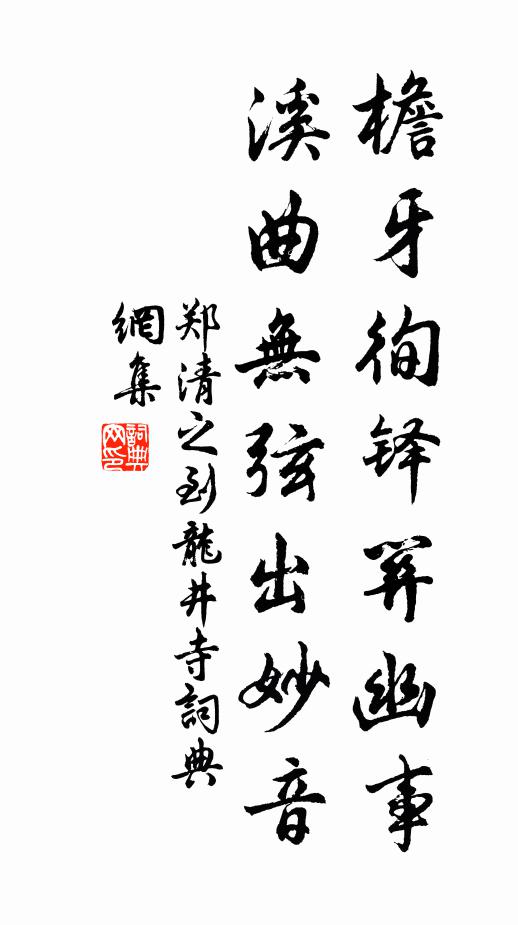 檐牙徇铎幽事
溪曲無弦出妙音
郑清之到龍井寺詞典
網集
詞典
网印